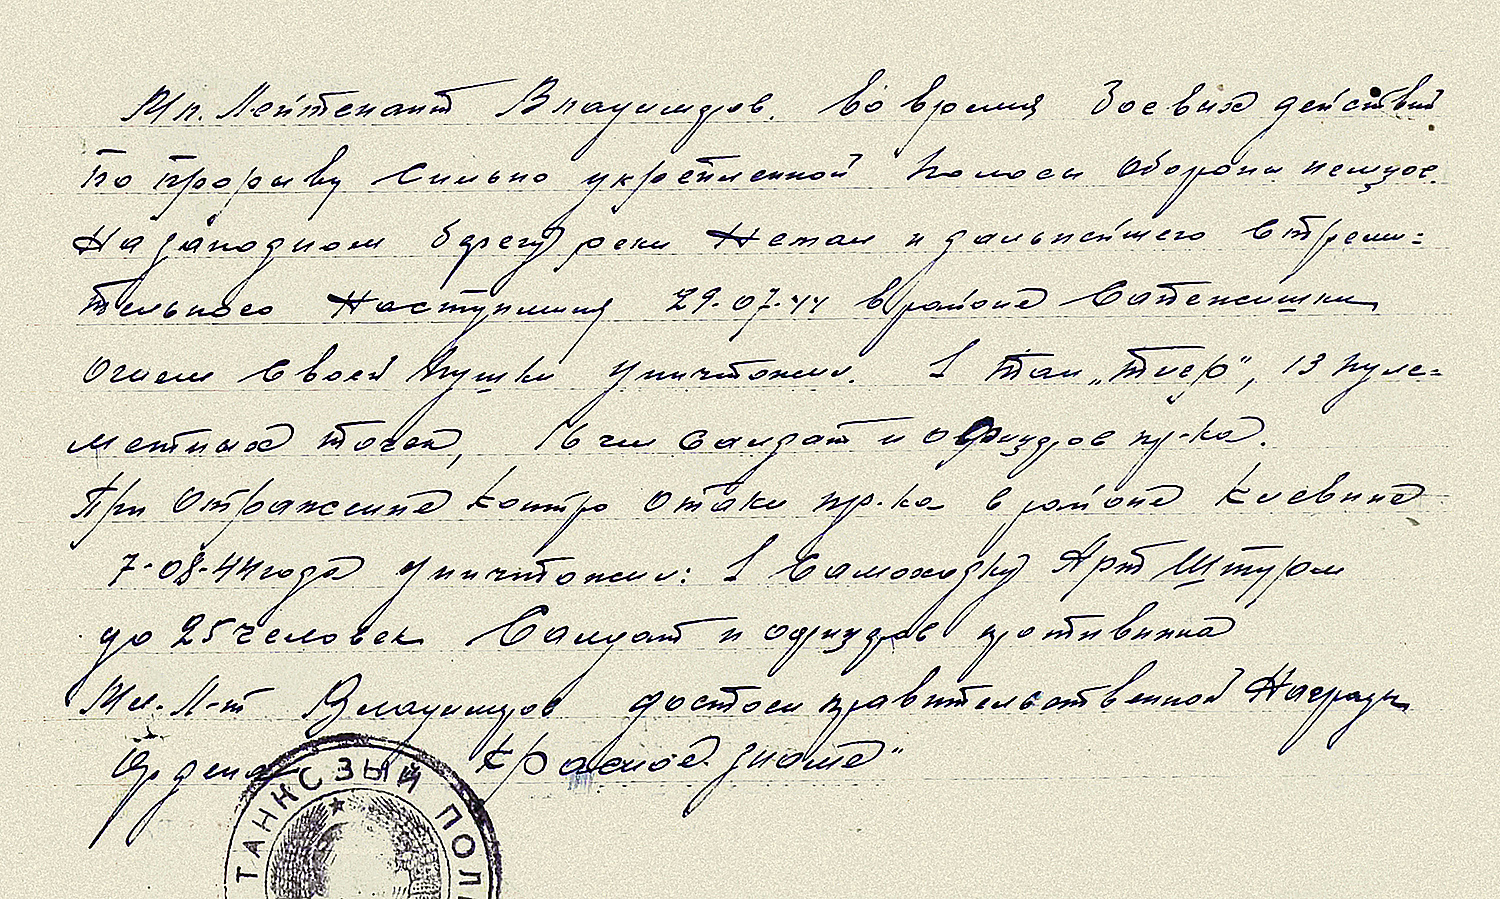 Мл. Лейтенант Владимиров. во время боевых действий
по прорыву сильно укрепленной полосы обороны немцев.
На западном берегу реки Неман и дальнейшего стреми-
тельного наступления 29-07-44 в районе
Огнем своей пушки уничтожил. 1 танк „Тигр", 13 пуле-
метных точек, 16 чел солдат и офицеров пр-ка.
При отражении контр атаки пр-ка в районе
7-08-44 года уничтожил: 1 самоходку Арт Штурм
до 25 человек Солдат и офицеров противника
Мл. Л-т Владимиров достоен правительственной Награды
Ордена „Красное знамя"
ТАНКОВЫЙ ПОЛК